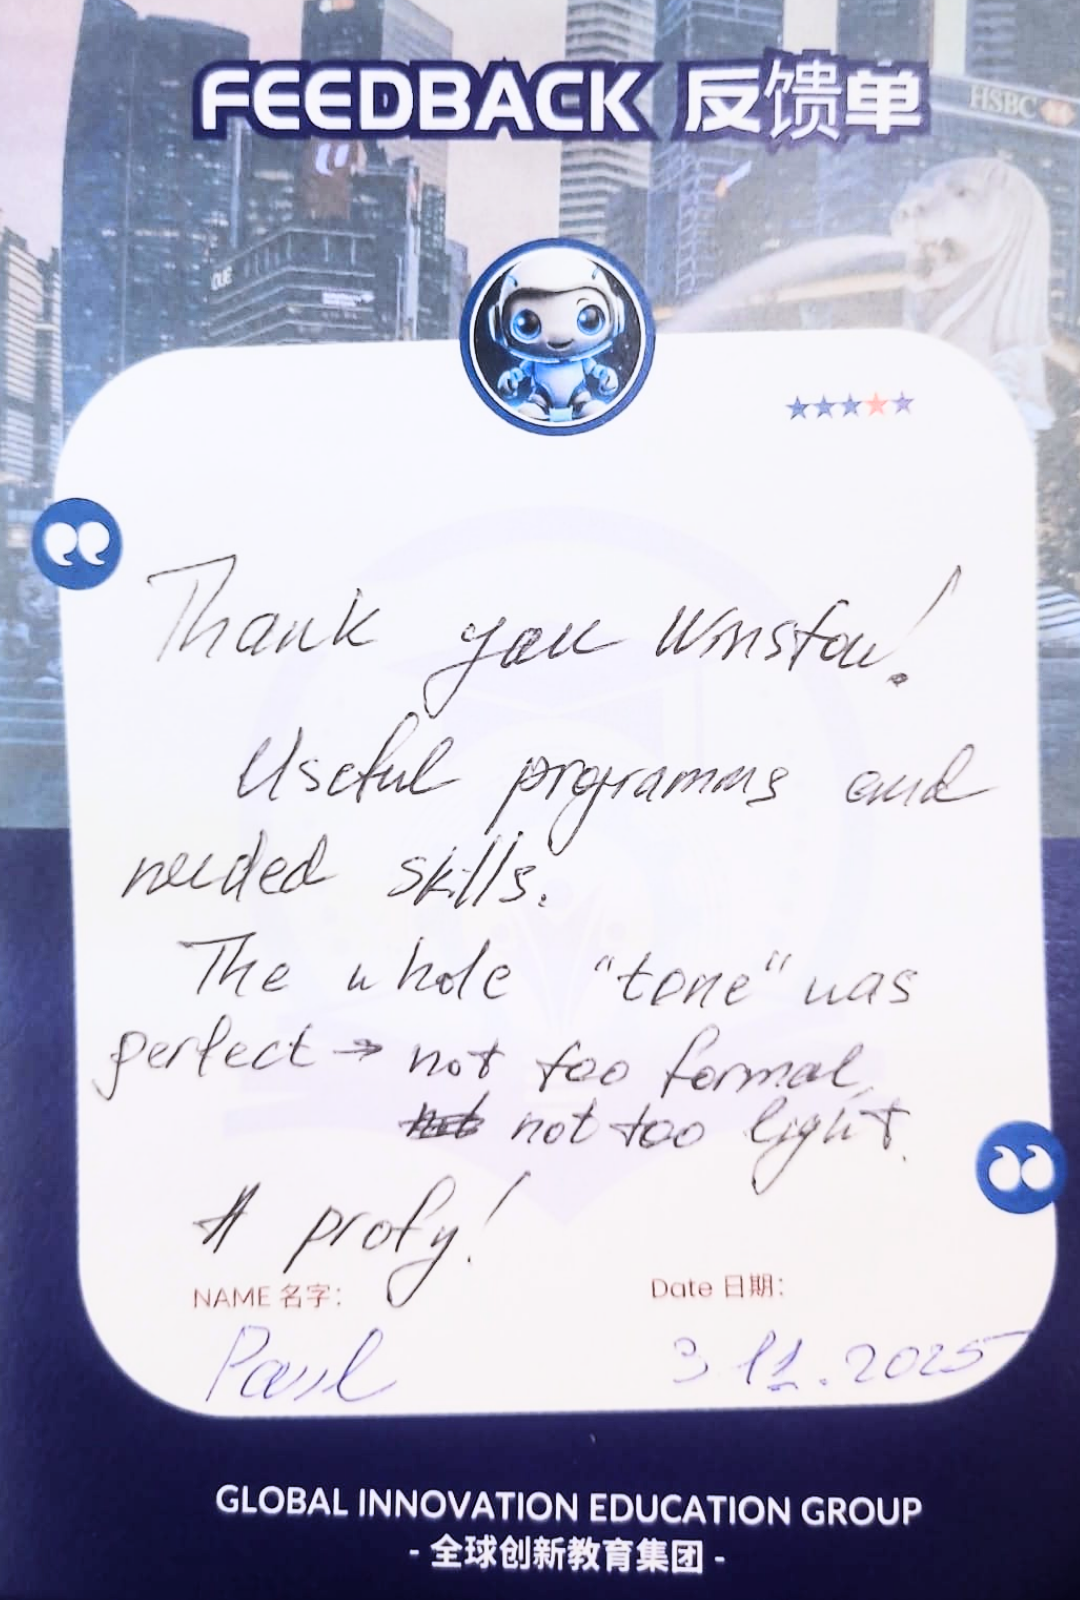 FEEDBACK 反馈单
HSBC
OUE
Thank you Winston!
Useful programms and
needed skills.
The whole "tone" was
perfect → not too formal,
not too light.
# profy!
NAME 名字:
Date 日期:
Paul
3 11.2025
GLOBAL INNOVATION EDUCATION GROUP
- 全球创新教育集团 -